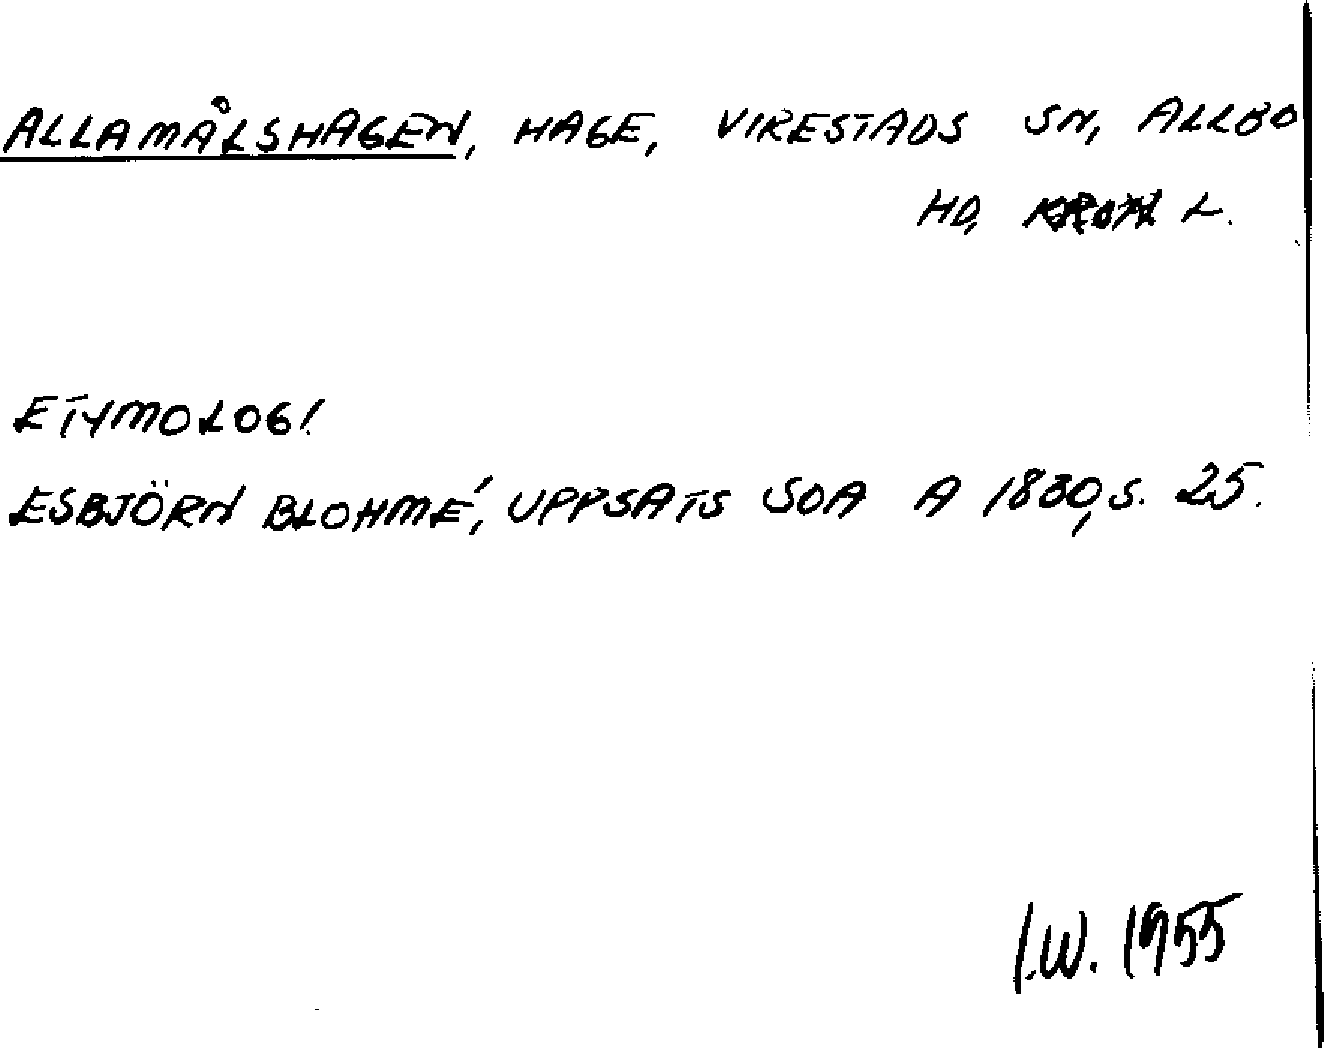 ALLAMÅLSHAGEN, HAGE, VIRESTADS SN, ALLBO
HD, KRON L.
ETYMOLOGI.
ESBJÖRN BLOHMÉ, UPPSATS SOA A 1830, S. 25.
I.W. 1955